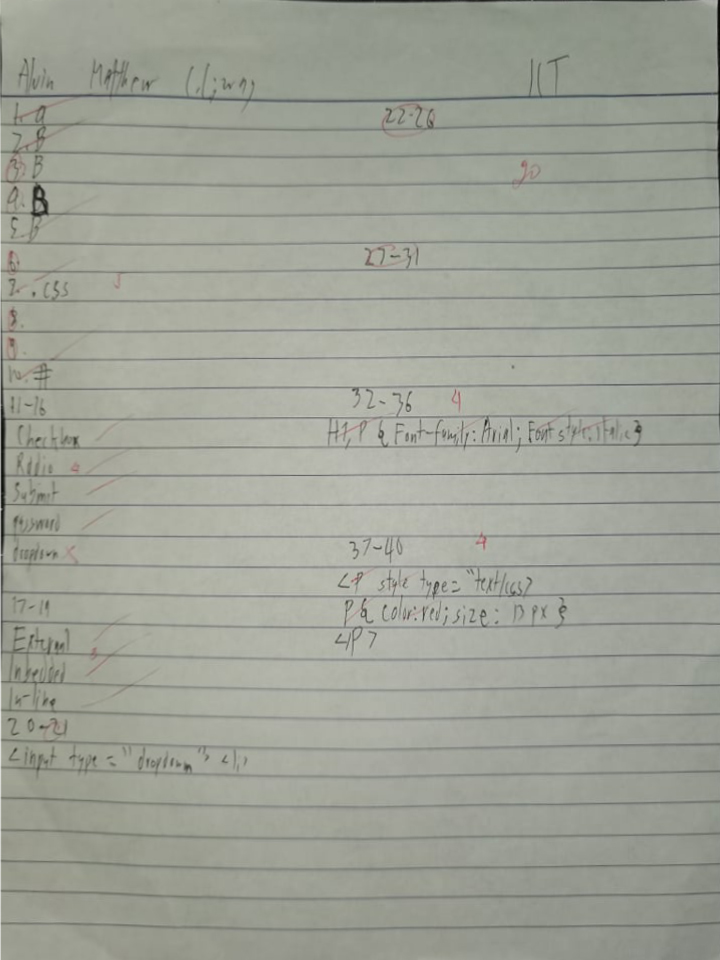 Alvin Matthew ICT
1. a
2. B
3. B
4. B
5. B
6.
7. .css 5
8.
9.
10. #
11-16
Checkbox
Radio 4
Submit
password
dropdown
17-19
External
Inbedded 3
In-line
20-21
<input type="dropdown">
22-26
20
27-31
32-36 4
H1, P { Font-family: Arial; Font style: italic }
37-40 4
<P style type="text/css>
P { color: red; size: 13 px }
</P>